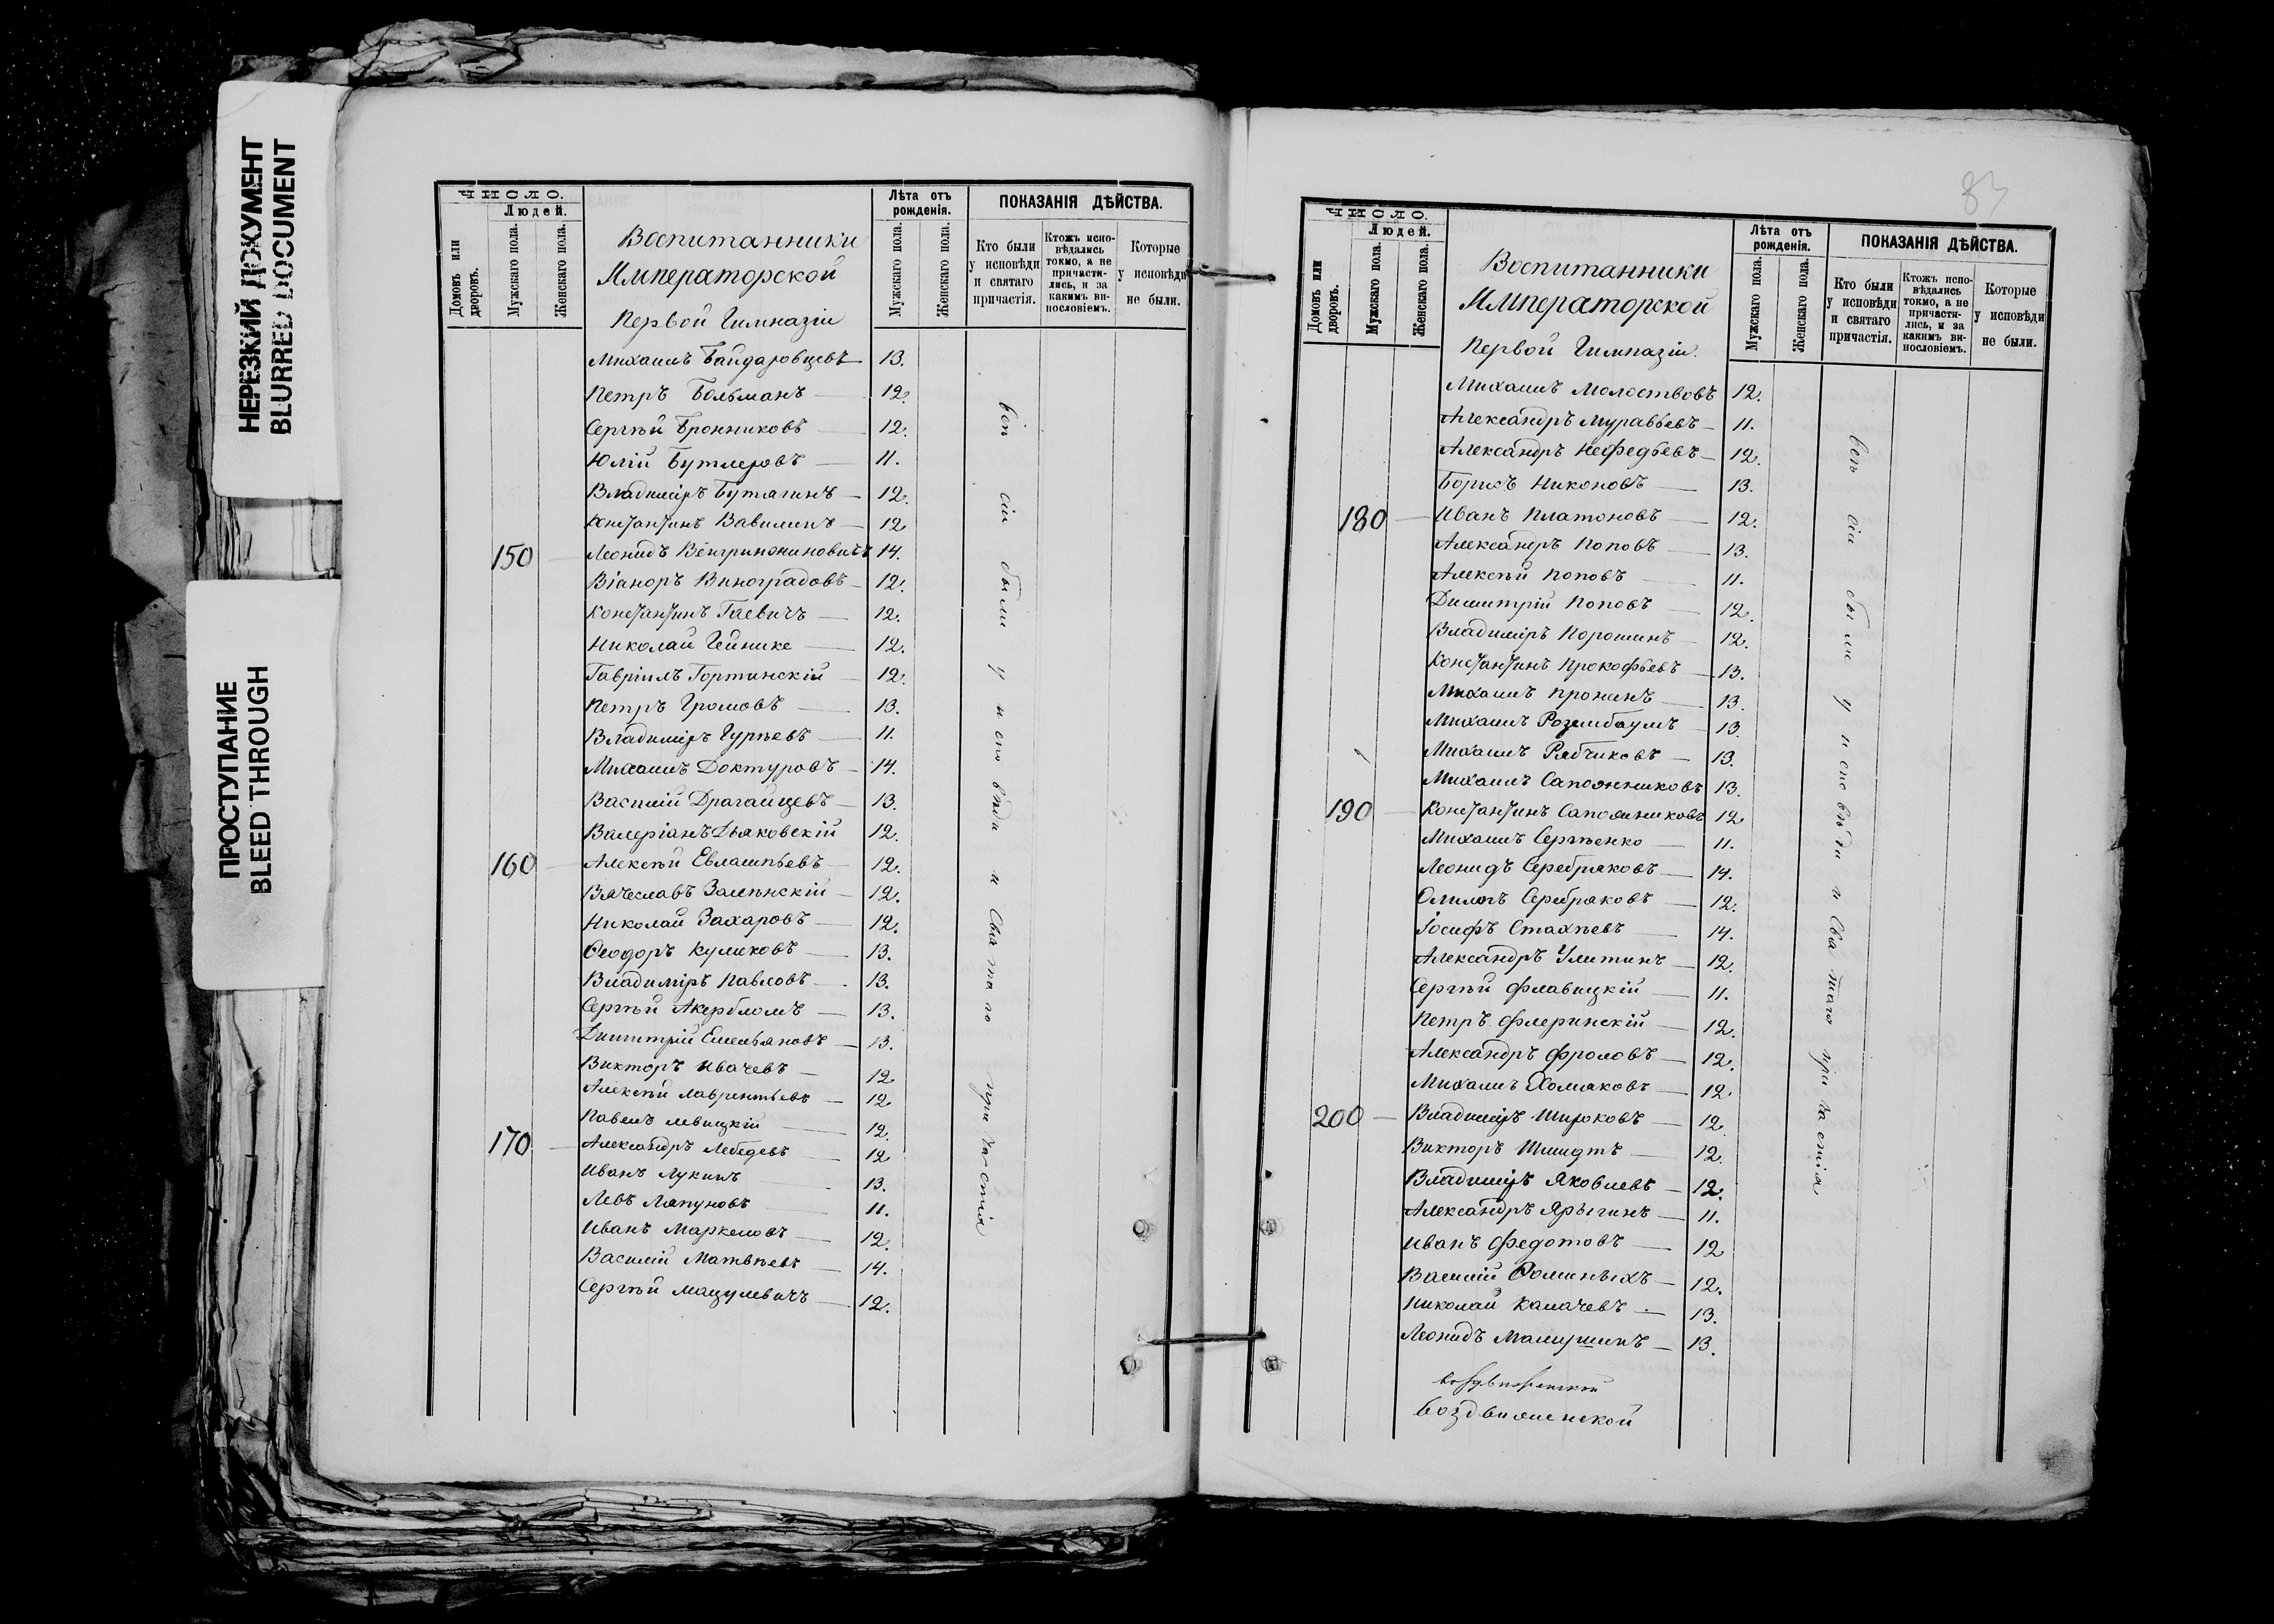 НЕРЕЗКИЙ ДОКУМЕНТ
BLURRED DOCUMENT
ПРОСТУПАНИЕ
BLEED THROUGH
ЧИСЛО.
Людей.
Домовъ или дворовъ.
Мужскаго пола.
Женскаго пола.
Воспитанники
Императорской
Первой Гимназіи
Лѣта отъ рожденія.
Мужскаго пола.
Женскаго пола.
ПОКАЗАНІЯ ДѢЙСТВА.
Кто были у исповѣди и святаго причастія.
Ктожъ испо-вѣдались токмо, а не причасти-лись, и за какимъ ви-нословіемъ.
Которые у исповѣди не были.
Михаилъ Байдаровцевъ 13.
Петръ Больманъ 12.
Сергѣй Бронниковъ 12.
Юлій Бутлеровъ 11.
Владиміръ Бутягинъ 12.
Константинъ Вавилинъ 12
150 Леонидъ 14.
Віаноръ Виноградовъ 12.
Константинъ Гаевичъ 12.
Николай Гейнике 12.
Гавріилъ Гортинскій 12.
Петръ Громовъ 13.
Владиміръ Гурьевъ 11.
Михаилъ Доктуровъ 14.
Василій Драгайцевъ 13.
Валеріанъ Дьяковскій 12.
160 Алексѣй Евлампьевъ 12.
Вячеславъ Залѣнскій 12.
Николай Захаровъ 12.
Ѳеодоръ Куликовъ 13.
Владиміръ Павловъ 13.
Сергѣй Акербломъ 13.
Димитрій Емельяновъ 13.
Викторъ Ивачевъ 12
Алексѣй Лаврентьевъ 12
Павелъ Левицкій 12.
170 Александръ Лебедевъ 12
Иванъ Лукинъ 13.
Левъ Ляпуновъ 11.
Иванъ Маркеловъ 12.
Василій Матвѣевъ 14.
Сергѣй Мацулевичъ 12.
всѣ сіи были у исповѣди и Святаго причастія
83
ЧИСЛО.
Людей.
Домовъ или дворовъ.
Мужскаго пола.
Женскаго пола.
Воспитанники
Императорской
Первой Гимназіи.
Лѣта отъ рожденія.
Мужскаго пола.
Женскаго пола.
ПОКАЗАНІЯ ДѢЙСТВА.
Кто были у исповѣди и святаго причастія.
Ктожъ испо-вѣдались токмо, а не причасти-лись, и за какимъ ви-нословіемъ.
Которые у исповѣди не были.
Михаилъ Молоствовъ 12.
Александръ Муравьевъ 11.
Александръ Нефедьевъ 12.
Борисъ Никоновъ 13.
180 Иванъ Платоновъ 12.
Александръ Поповъ 13.
Алексѣй Поповъ 11.
Димитрій Поповъ 12.
Владиміръ Порошинъ 12.
Константинъ Прокофьевъ 13.
Михаилъ Пронинъ 13.
Михаилъ Розембаумъ 13.
Михаилъ Рябчиковъ 13.
Михаилъ Сапожниковъ 13.
190 Константинъ Сапожниковъ 12
Михаилъ Сергѣенко 11.
Леонидъ Серебряковъ 14.
Серебряковъ 12.
Іосифъ Стахѣевъ 14.
Александръ Улитинъ 12.
Сергѣй Флавицкій 11.
Петръ Флеринскій 12.
Александръ Фроловъ 12.
Михаилъ Холмаковъ 12
200 Владиміръ Широковъ 12
Викторъ Шмидтъ 12.
Владиміръ Яковлевъ 12.
Александръ Ярыгинъ 11.
Иванъ Федотовъ 12
Василій Ѳоминыхъ 12.
Николай Калачевъ 13.
Леонидъ Мамушинъ 13.
всѣ сіи были у исповѣди и Святаго причастія
воздвиженской
Воздвиженской